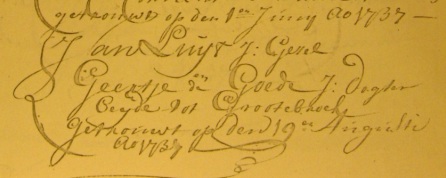 getrouwt op den 1en Juny Ao 1737 —
Jan Luyt J: Gesel
Geertje de Goede J: Dogter
Beyde tot Grootebroek
Getrouwt op den 19en Augusti
Ao 1737